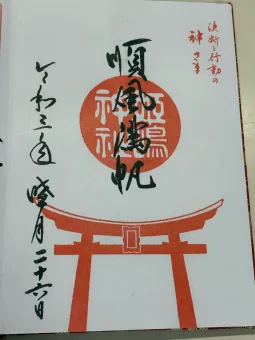 決断と行動の
神さま
順風満帆
神社
令和三年 睦月 二十六日